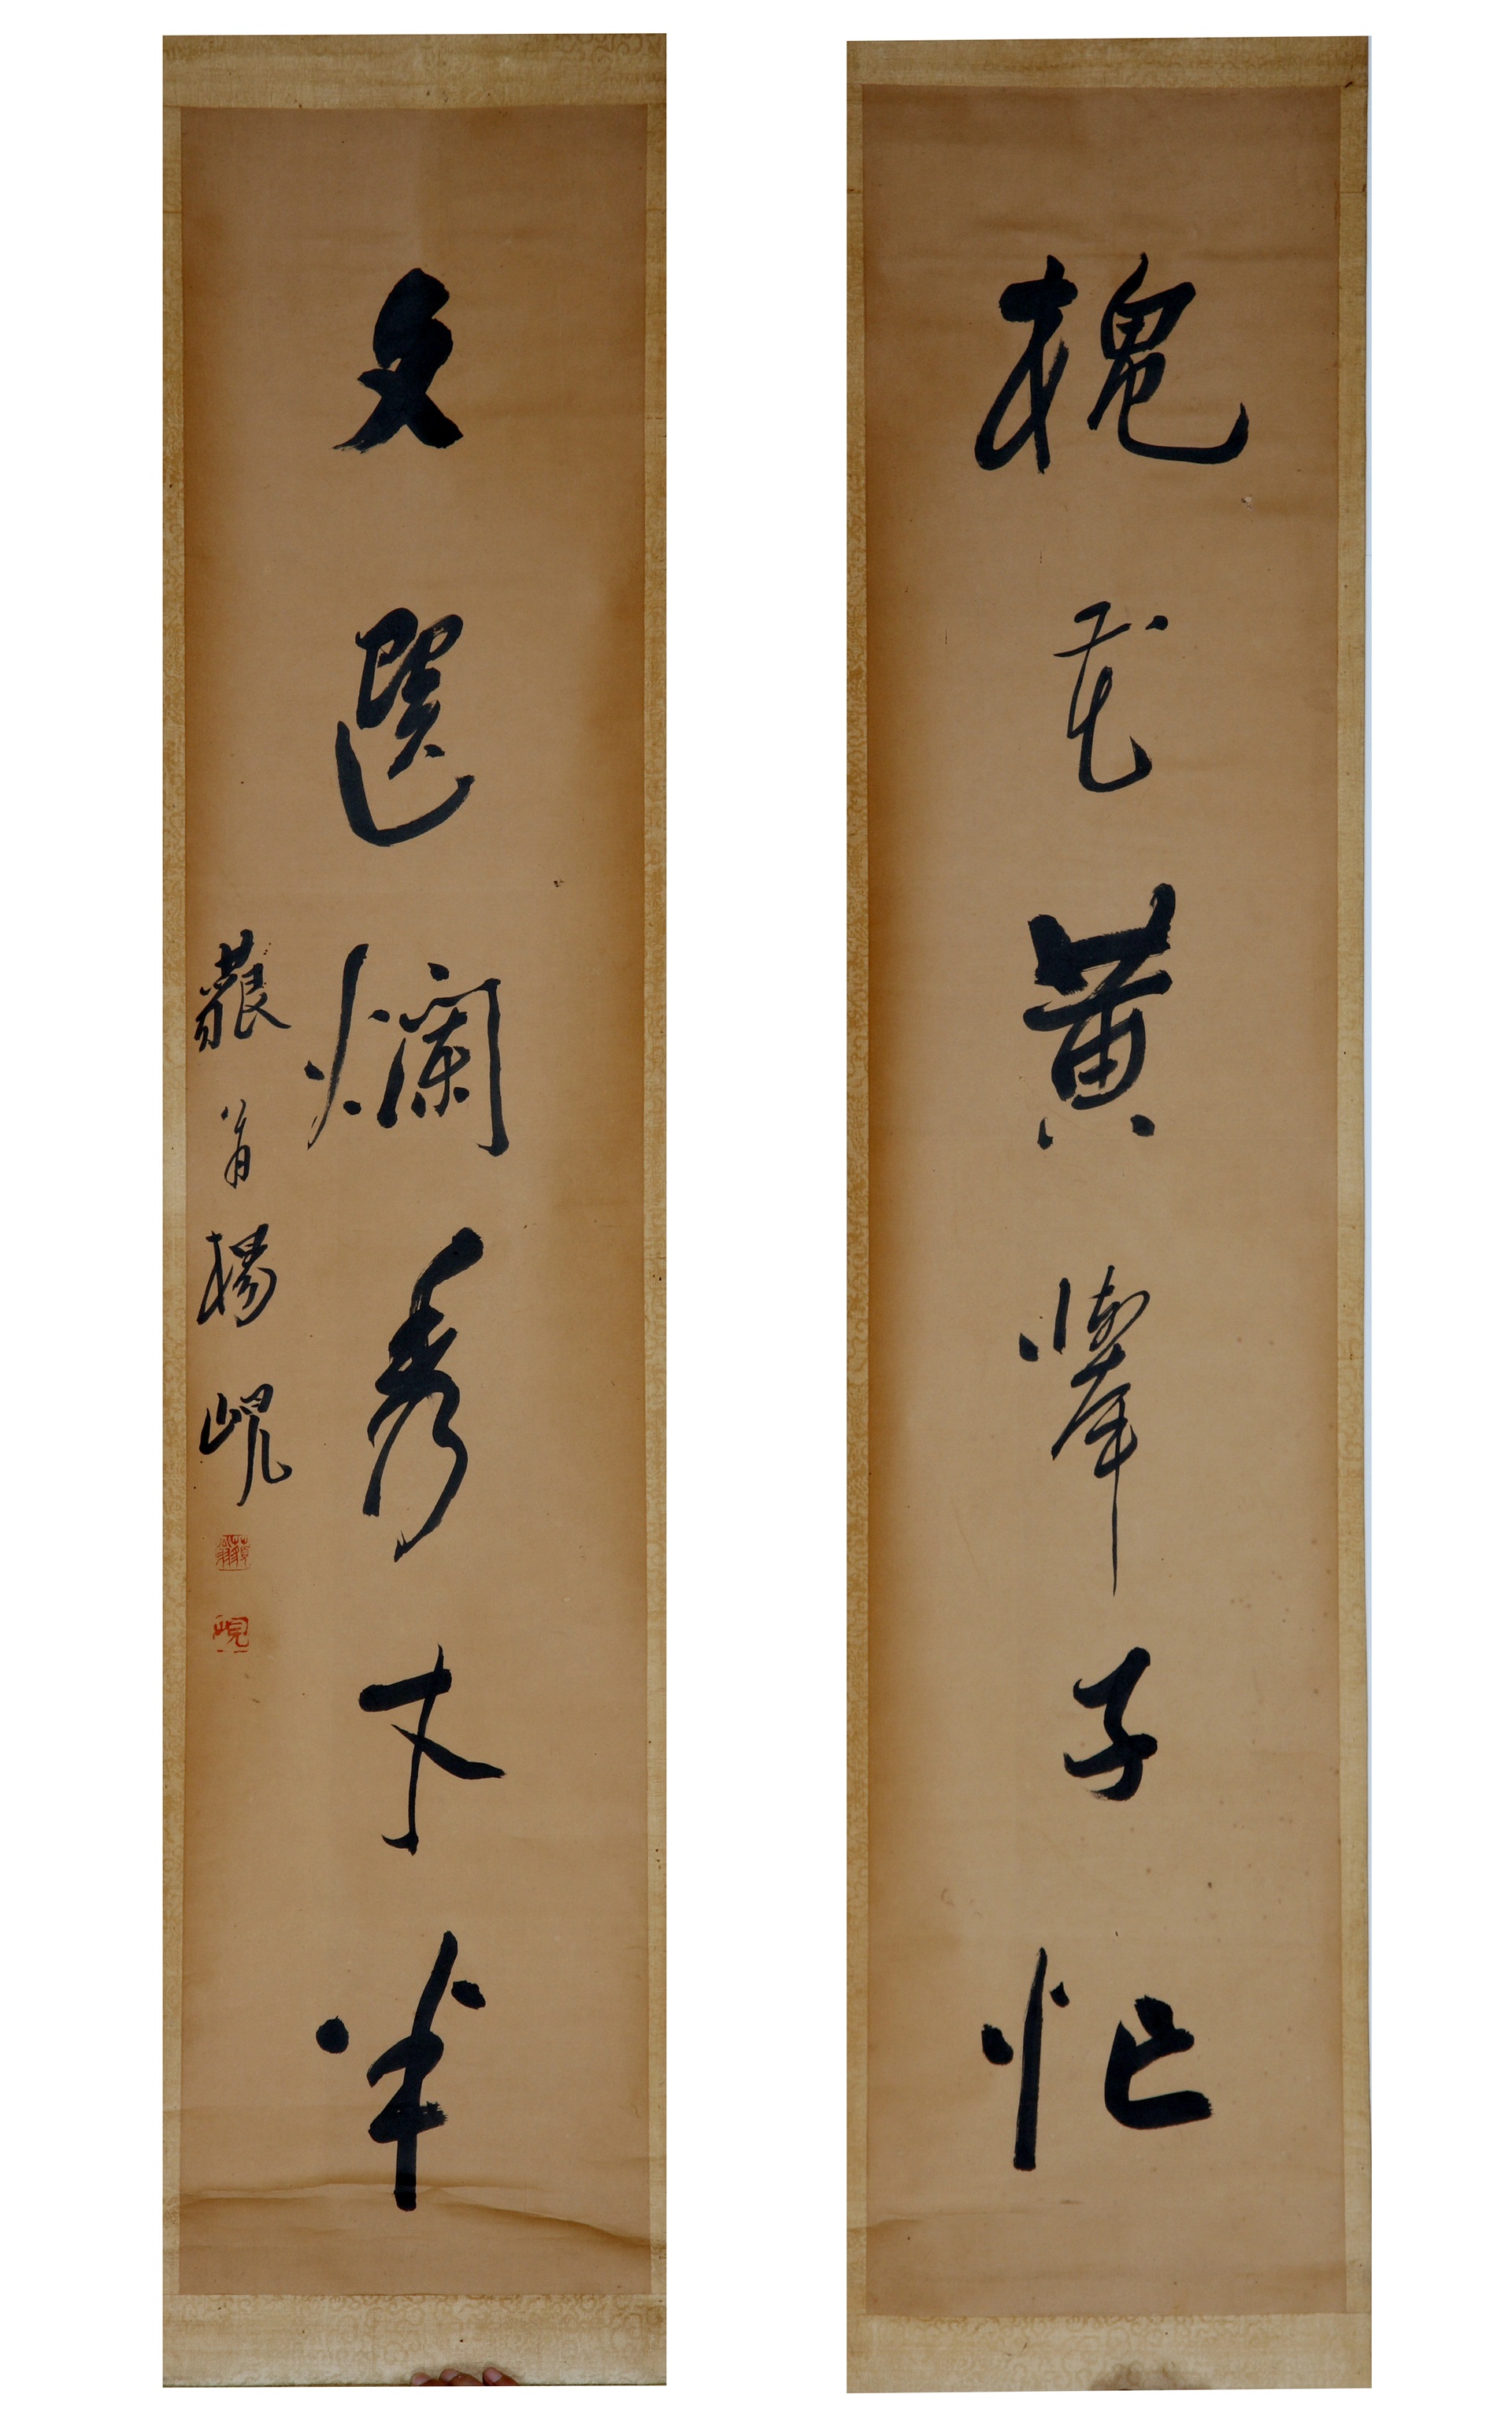 槐花黄舉子忙
文選爛秀才半
藐翁楊峴
藐翁
峴